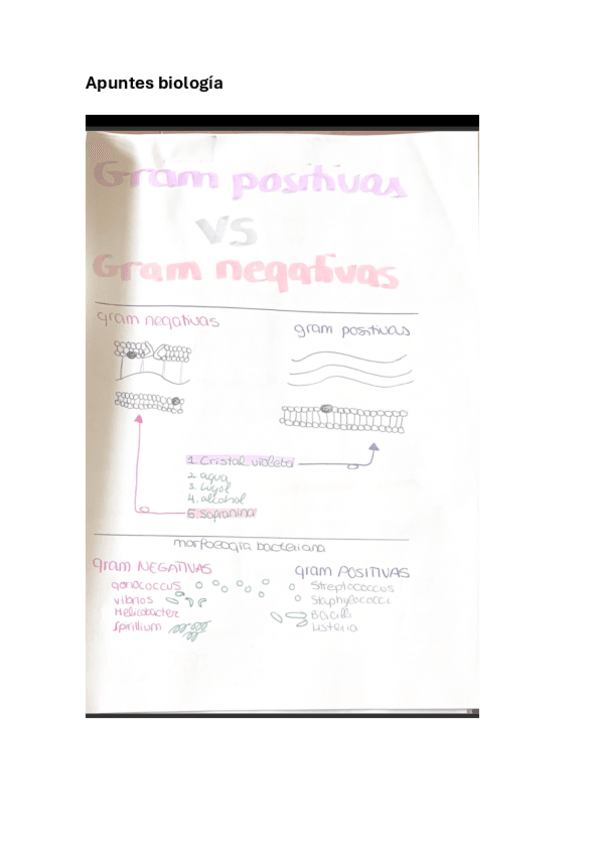 Apuntes biología
Gram positivas
VS
Gram negativas
gram negativas
gram positivas
1. Cristal violeta
2. agua
3. lugol
4. alcohol
5. Safranina
morfología bacteriana
gram NEGATIVAS
gram POSITIVAS
gonococcus
vibrios
Helicobacter
Spirillium
Streptococcus
Staphylococci
Bacilli
Listeria